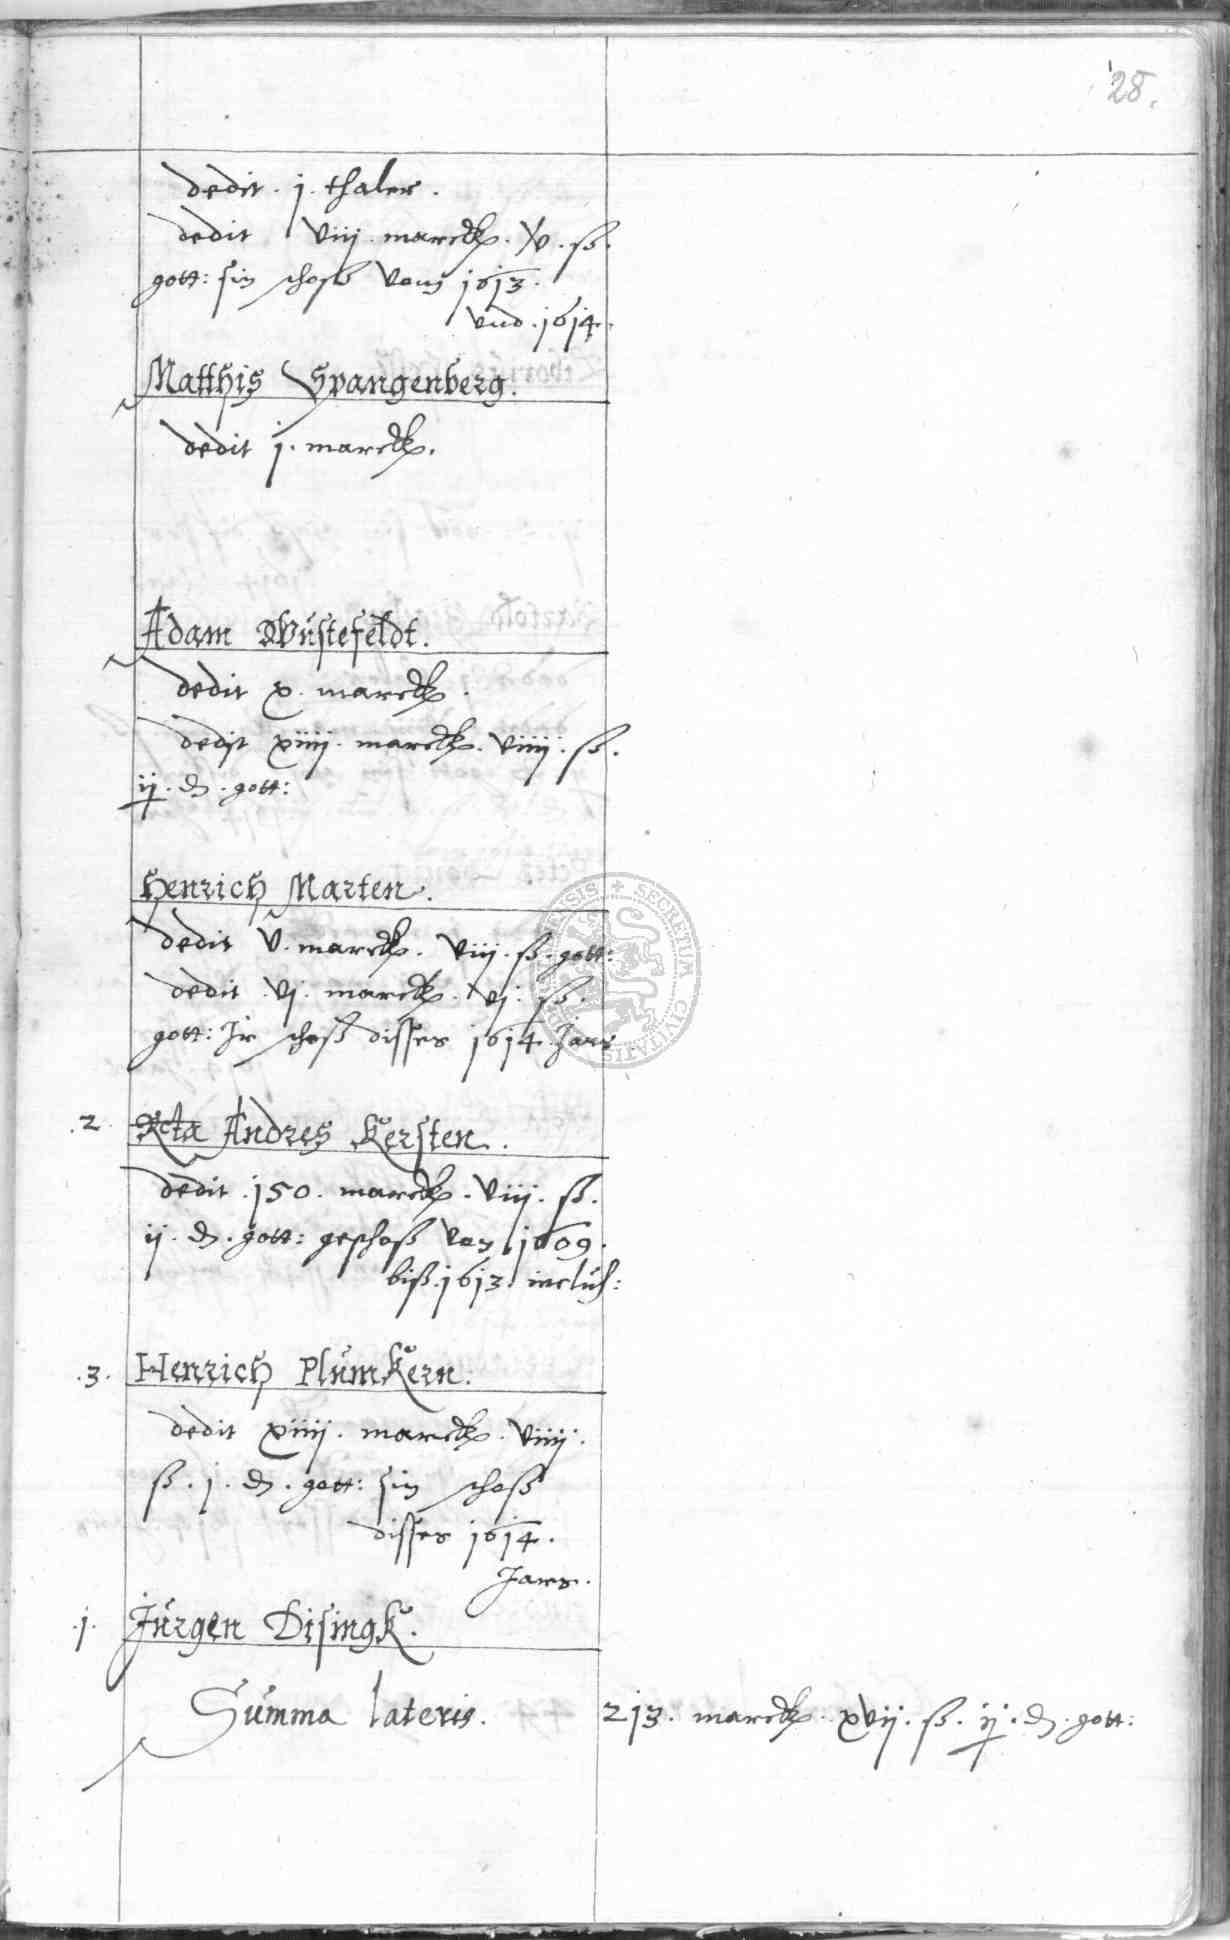 28.
dedit . j . thaler .
dedit viij . marck . v . ß .
gott : sin schoß vom 1613 .
vnd . 1614 .
Matthis Spangenberg .
dedit j . marck .
Adam Wüstefeldt .
dedit x . marck .
dedit xiiij . marck . viiij . ß .
ij . d . gott :
Henrich Marten .
dedit v . marck . viij . ß . gott :
dedit vj . marck . vj . ß .
gott : Jr schoß disses 1614 . Jars
.2. Rcta Andres Kersten .
dedit . 150 . marck . viij . ß .
ij . d . gott : geschoß van 1609 .
biß . 1613 . inclus :
.3. Henrich Plümkern .
dedit xiiij . marck . viiij .
ß . j . d . gott : sin schoß
disses 1614 .
Jars .
.j. Jürgen Disingk .
Summa lateris . 213 . marck . xvij . ß . ij . d . gott :
SECRETUM CIVITATIS